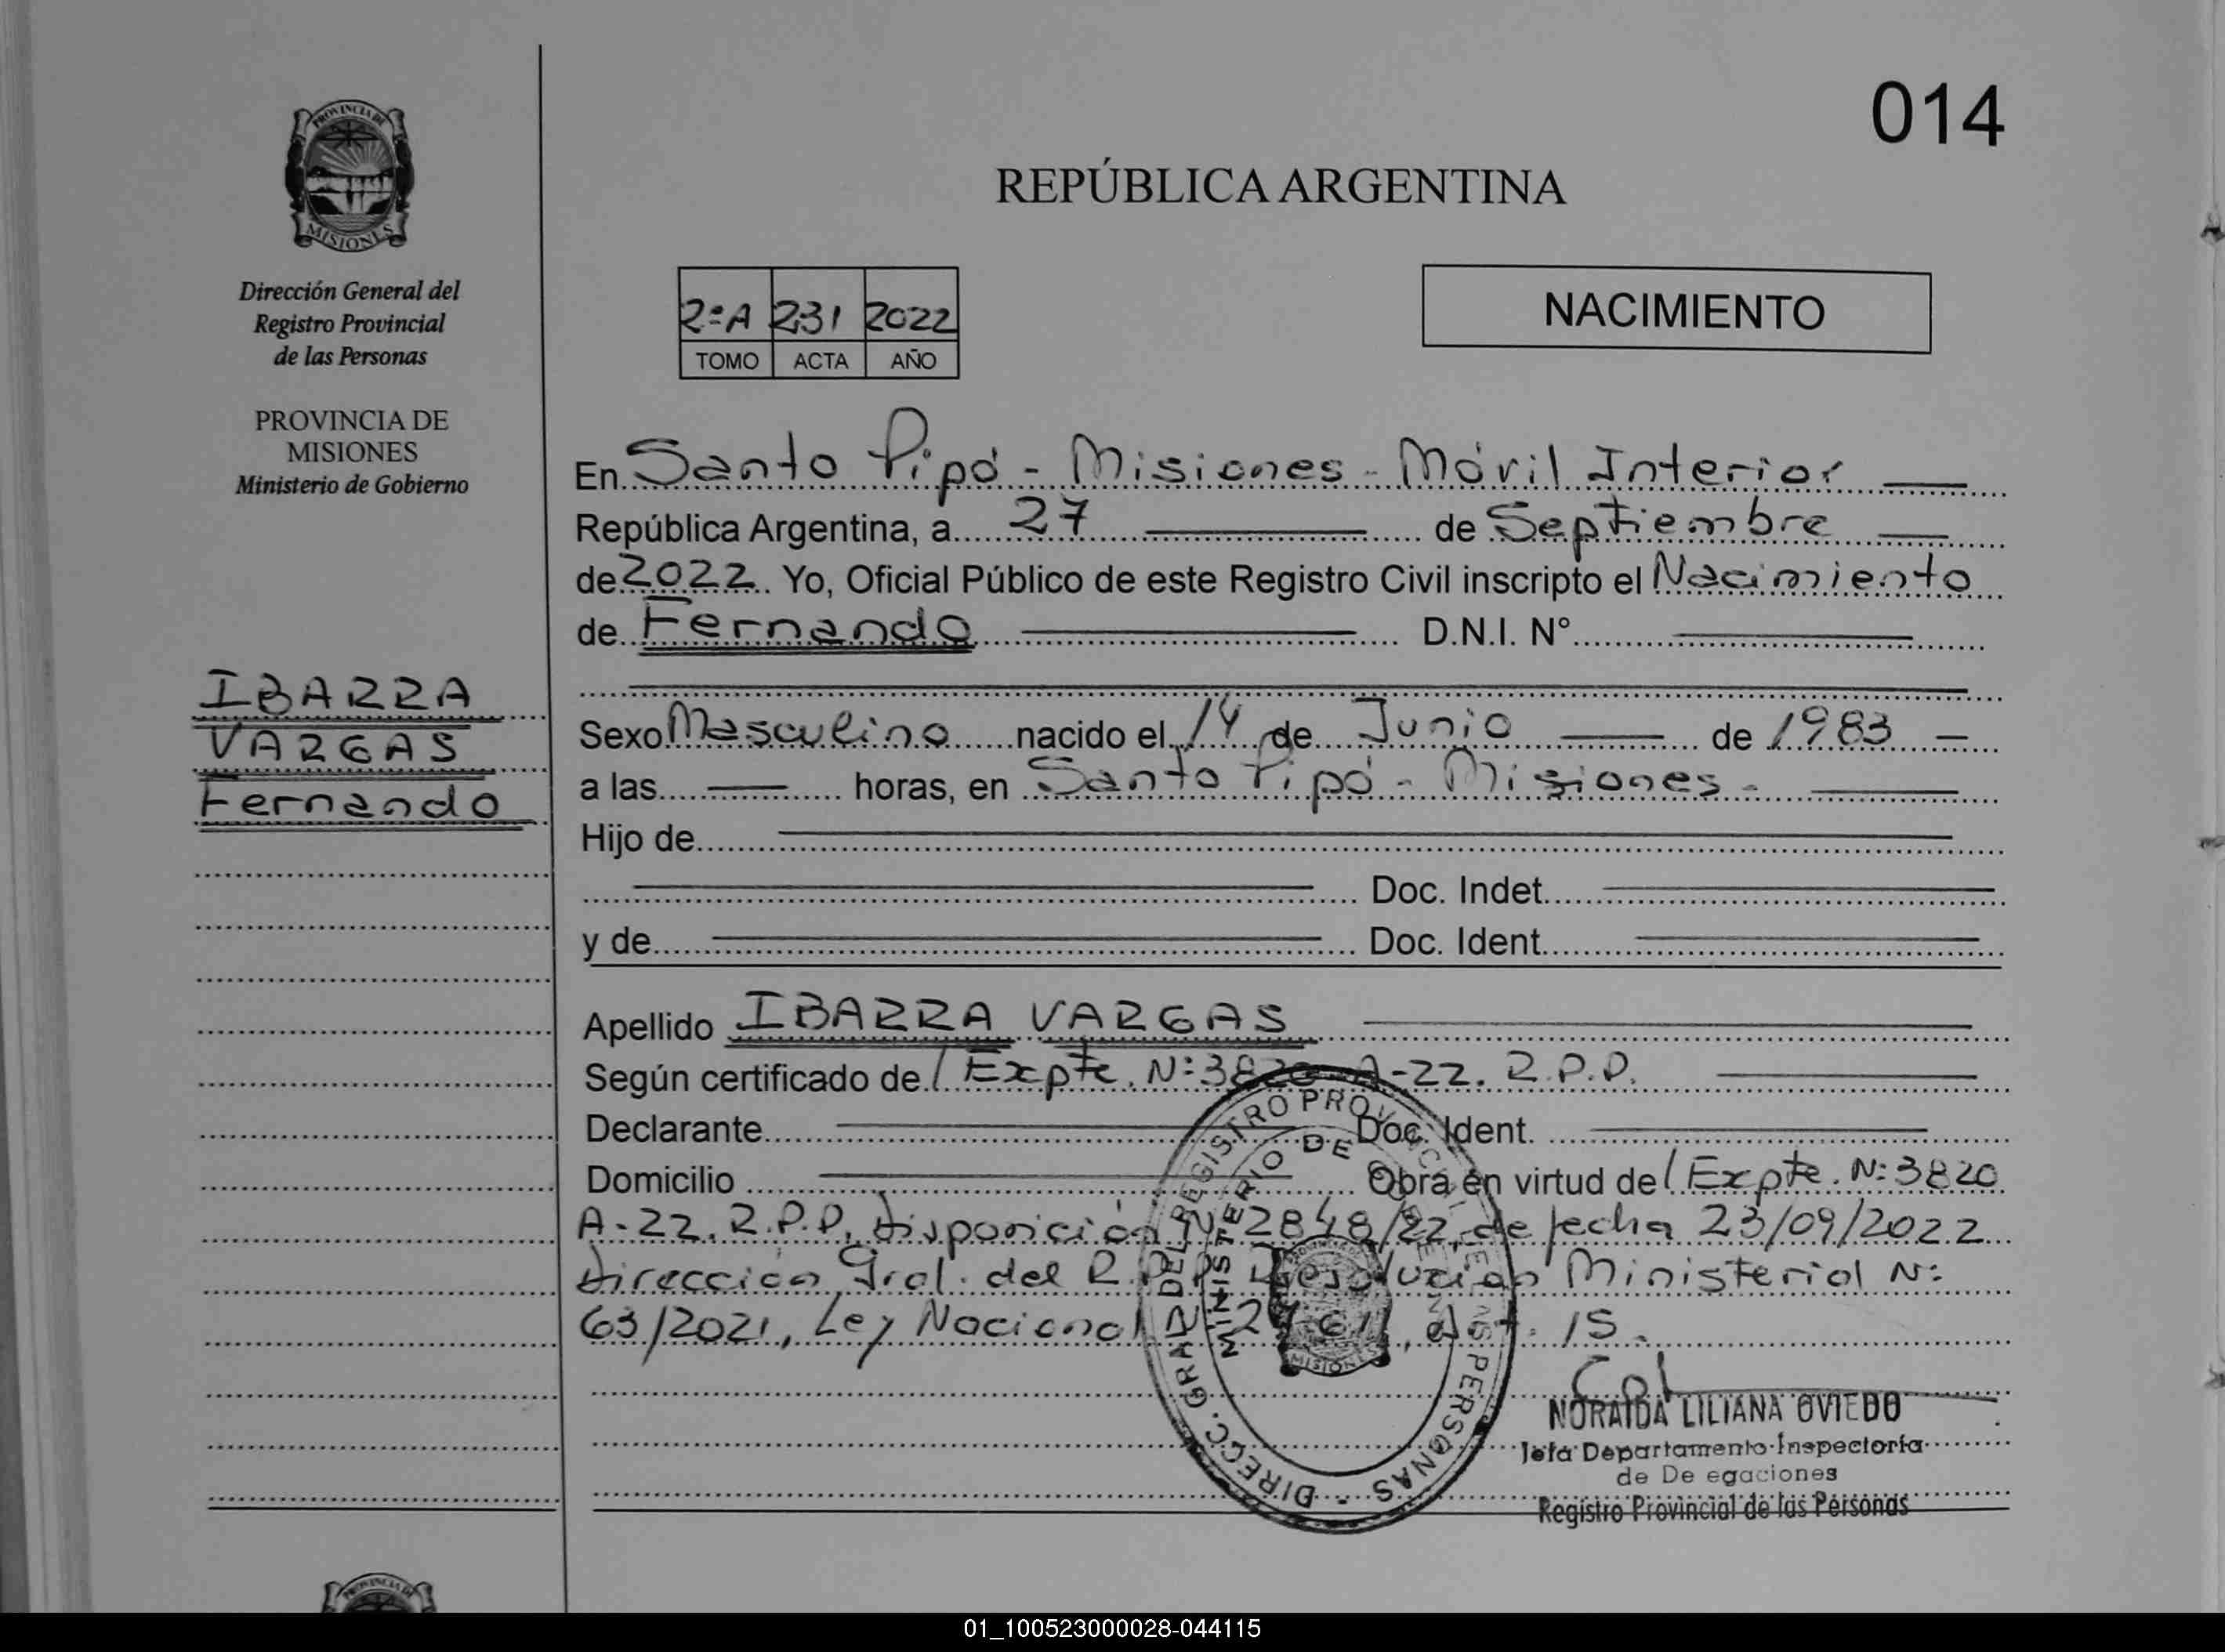 014
PROVINCIA DE
MISIONES
REPÚBLICA ARGENTINA
Dirección General del
Registro Provincial
de las Personas
PROVINCIA DE
MISIONES
Ministerio de Gobierno
2ºA 231 2022
TOMO ACTA AÑO
NACIMIENTO
En Santo Pipó - Misiones - Móvil Interior
República Argentina, a 27 de Septiembre
de 2022 Yo, Oficial Público de este Registro Civil inscripto el Nacimiento
de Fernando D.N.I. N°
IBARRA
VARGAS
Fernando
Sexo Masculino nacido el 14 de Junio de 1983
a las horas, en Santo Pipó - Misiones -
Hijo de
Doc. Indet.
y de Doc. Ident.
Apellido IBARRA VARGAS
Según certificado de/ Expte. Nº 3820-A-22. R.P.P.
Declarante Doc. Ident.
Domicilio Obra en virtud de/ Expte. Nº 3820
A-22. R.P.P. Disposición Nº 2848/22, de fecha 23/09/2022
Dirección Gral. del R.P.P. Resolución Ministerial Nº
63/2021, Ley Nacional , Art. 15.
DIRECC. GRAL. DEL REGISTRO PROVINCIAL DE LAS PERSONAS -
MINISTERIO DE
MISIONES
NORAIDA LILIANA OVIEDO
Jefa Departamento Inspectoría
de De egaciones
Registro Provincial de las Personas
01_100523000028-044115